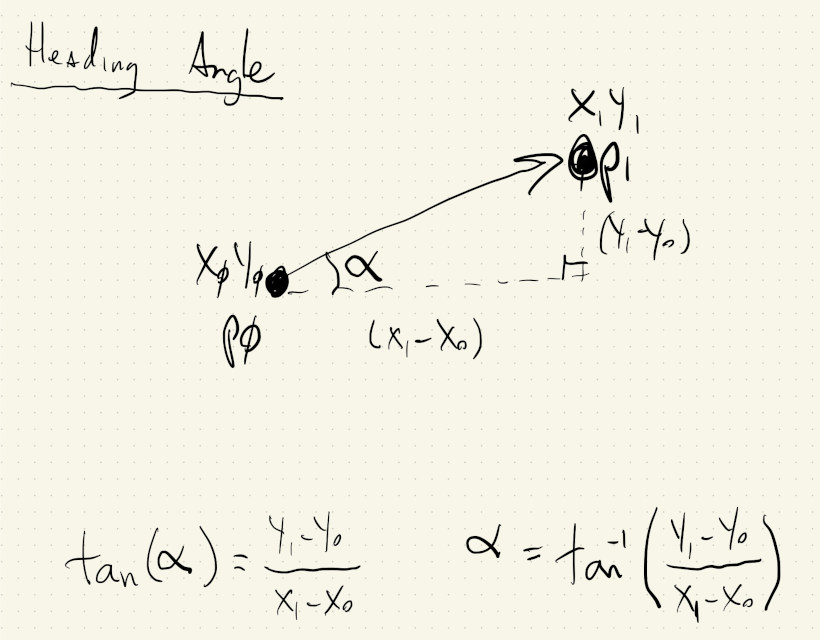 Heading Angle
X₁Y₁
p1
(Y₁-Y₀)
XφYφ
α
pφ
(X₁-X₀)
tan(α) = Y₁-Y₀ / X₁-X₀
α = tan⁻¹(Y₁-Y₀ / X₁-X₀)